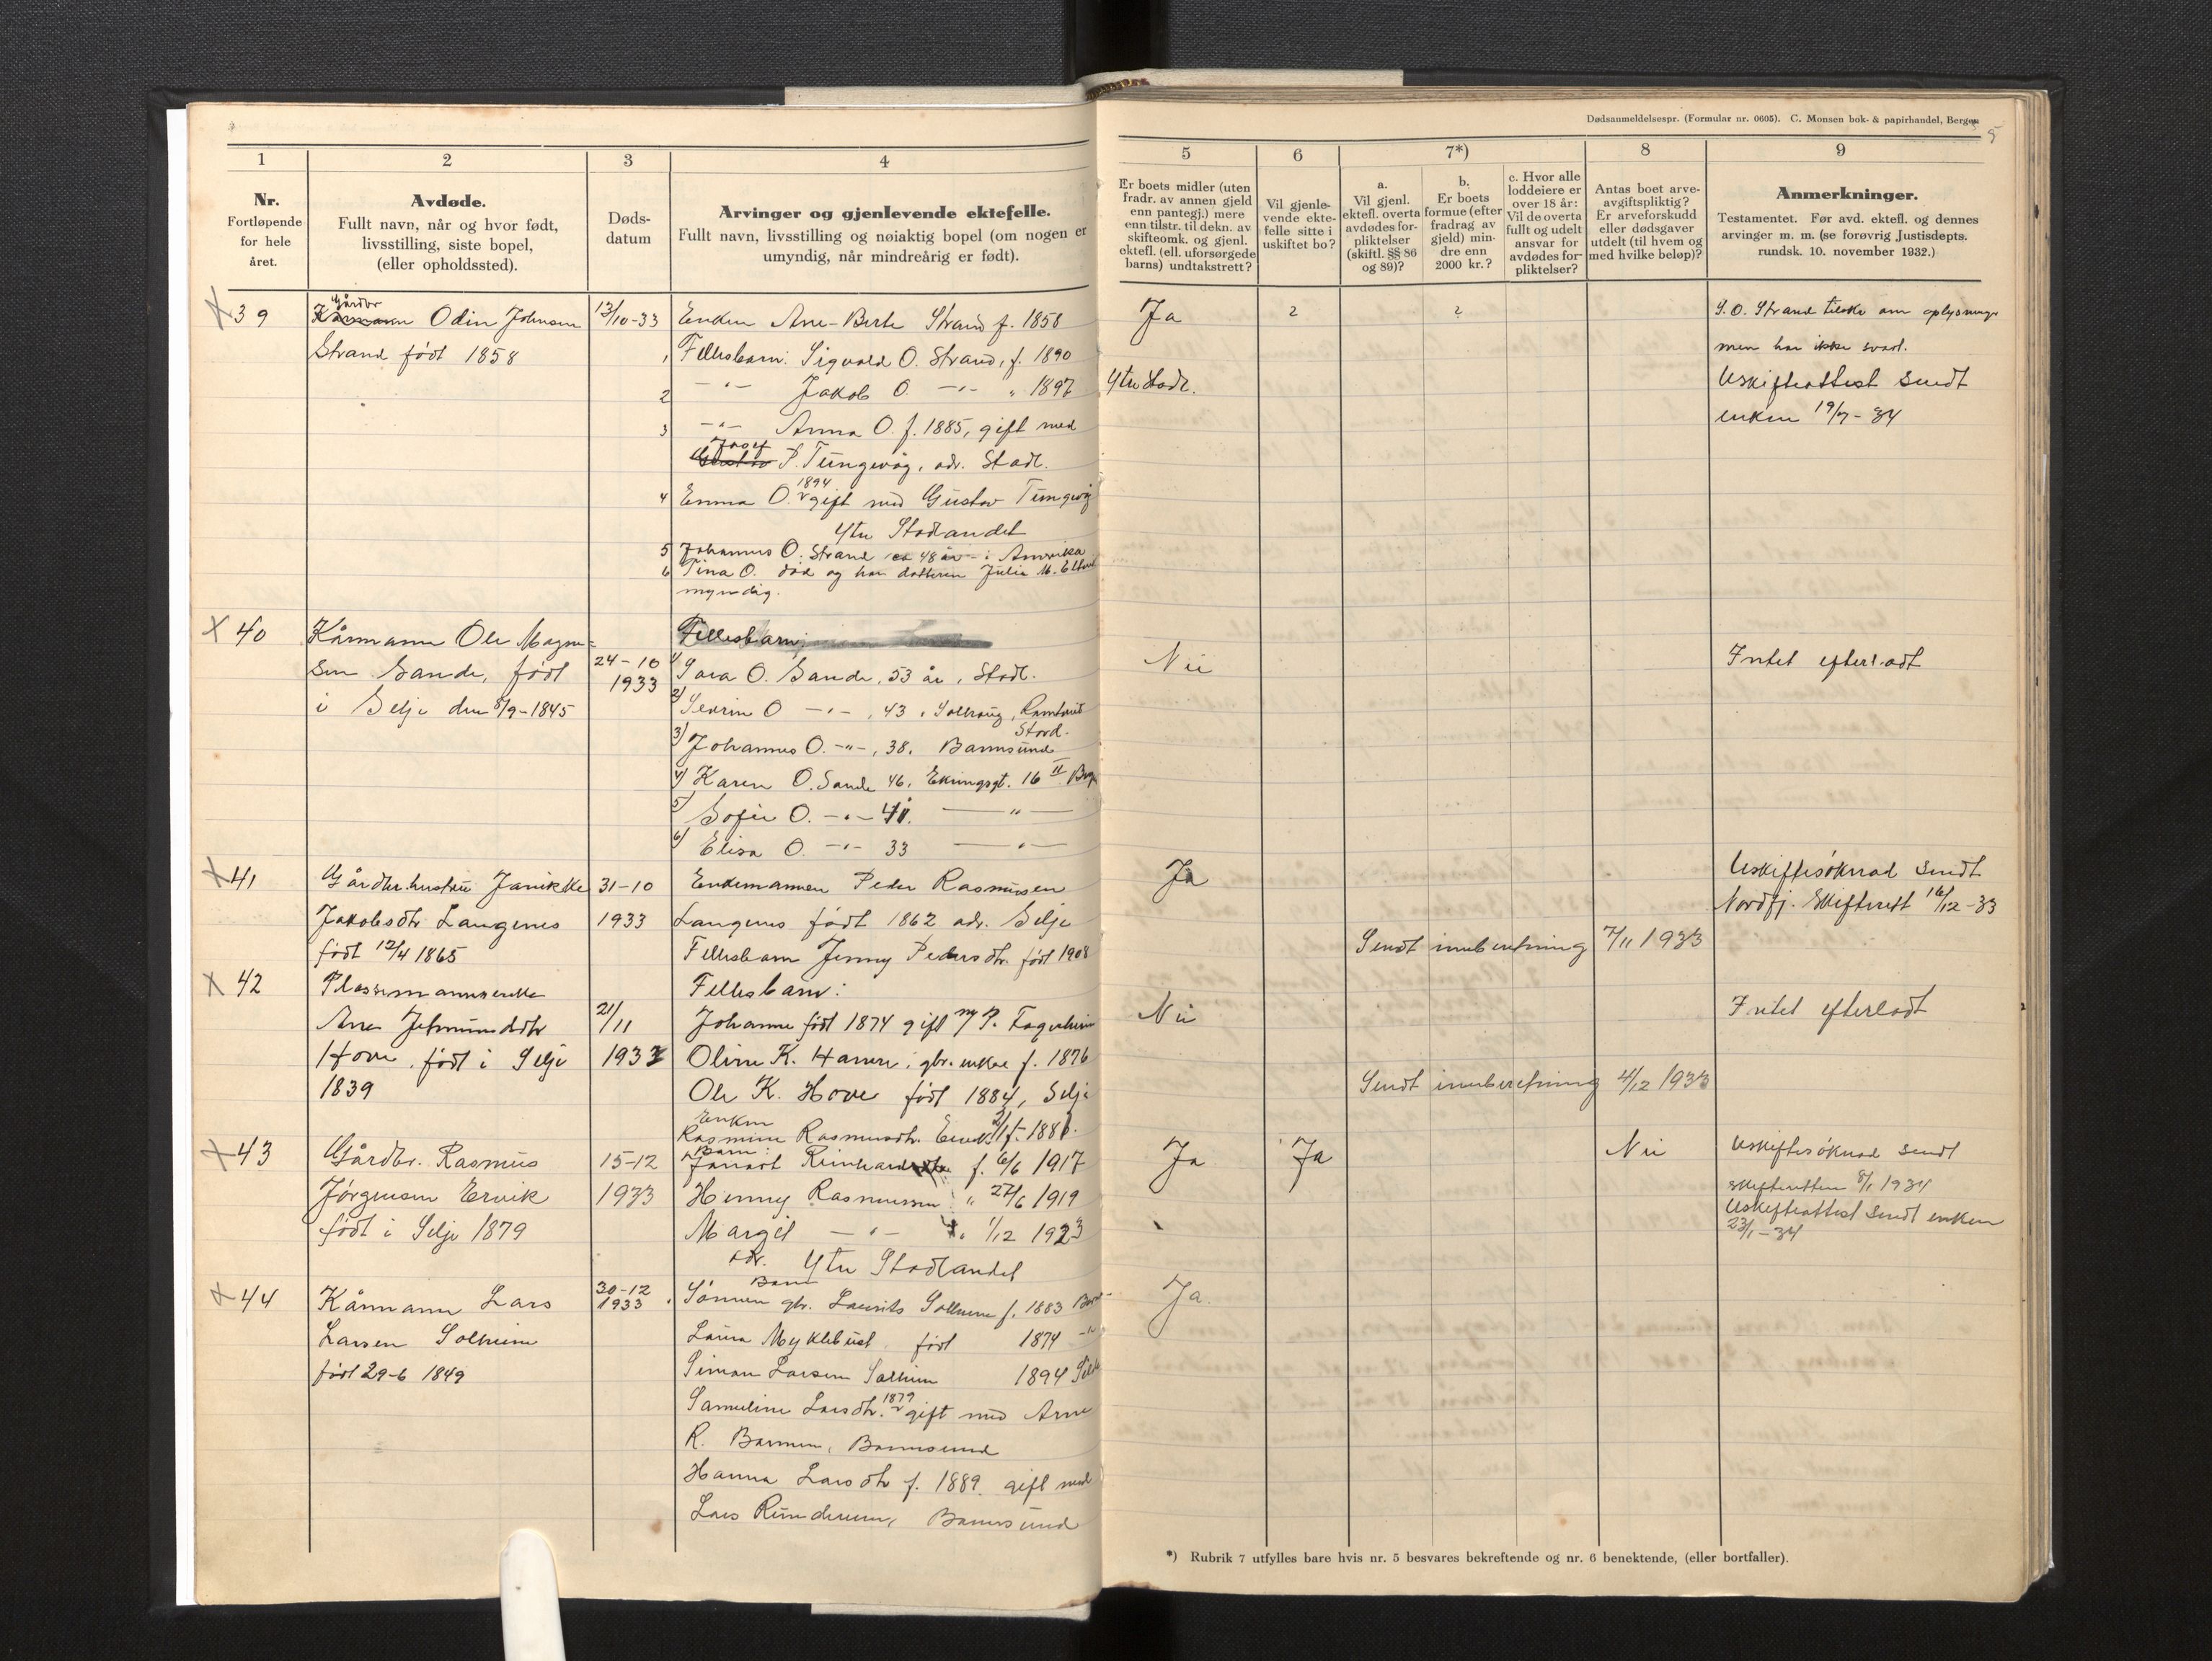 Dødsanmeldelsespr. (Formular nr. 0605). C. Monsen bok- & papirhandel, Bergen
5
1 2 3 4 5 6 7*) 8 9
Nr.
Fortløpende
for hele
året.
Avdøde.
Fullt navn, når og hvor født,
livsstilling, siste bopel,
(eller opholdssted).
Døds-
datum
Arvinger og gjenlevende ektefelle.
Fullt navn, livsstilling og nøiaktig bopel (om nogen er
umyndig, når mindreårig er født).
Er boets midler (uten
fradr. av annen gjeld
enn pantegj.) mere
enn tilstr. til dekn. av
skifteomk. og gjenl.
ektefl. (ell. uforsørgede
barns) undtakstrett?
Vil gjenle-
vende ekte-
felle sitte i
uskiftet bo?
a.
Vil gjenl.
ektefl. overta
avdødes for-
pliktelser
(skiftl. §§ 86
og 89)?
b.
Er boets
formue (efter
fradrag av
gjeld) min-
dre enn
2000 kr.?
c. Hvor alle
loddeiere er
over 18 år:
Vil de overta
fullt og udelt
ansvar for
avdødes for-
pliktelser?
Antas boet arve-
avgiftspliktig?
Er arveforskudd
eller dødsgaver
utdelt (til hvem og
med hvilke beløp)?
Anmerkninger.
Testamentet. Før avd. ektefl. og dennes
arvinger m. m. (se forøvrig Justisdepts.
rundsk. 10. november 1932.)
X 39
Gårdbr
Kårmann Odin Johnsen
Strand født 1858
13/10-33
Enken Ane-Berte Strand f. 1858
1 Fellesbarn: Sigvald O. Strand, f. 1890
2 -"- Jakob O. -"- " 1897
3 -"- Anna O. f. 1885, gift med
Josef
P. Tungevåg, adr. Stadt.
1894
4 Emma O. gift med Gustav Tungevåg
Ytre Stadlandet
5 Johannes O. Strand ca 48 år - i Amerika
6 Tina O. død og har datteren Julie M.
myndig.
Ja
2
2
Ytre Stadt.
S. O. Strand tilskr. om oplysninger
men har ikke svart.
Uskifteattest sendt
enken 19/7-34
X 40
Kårmann Ole Magne-
sen Sande, født
i Selje den 8/9-1845
24-10
1933
Fellesbarn:
1) Sara O. Sande, 53 år, Stadt.
2) Severin O -"-, 43,
Stord.
3) Johannes O. -"-, 38, Barmsund
4) Karen O. Sande 46, Ekrengsgt. 16 II Brgn
5) Sofie O. -"- 41. -"-
6) Elisa O. -"- 33 -"-
Nei
Intet efterladt
X 41
Gårdbr.hustru Janikke
Jakobsdtr Langenes
født 12/4 1865
31-10
1933
Enkemannen Peder Rasmussen
Langenes født 1862 adr. Selje
Fellesbarn Jenny Pedersdtr. født 1908
Ja
Sendt innberetning 7/11 1933
Uskiftesøknad sendt
Nordfj. Skifterett 16/12-33
X 42
Plassemannsenke
Ane Jetmundsdtr
Hove, født i Selje
1839
21/11
1933
Fellesbarn:
Johanne født 1874 gift m/ P. Fagerheim
Oline K. Hamre, gbr. enke f. 1876
Ole K. Hove født 1884, Selje
Nei
Sendt innberetning 4/12 1933
Intet efterladt
X 43
Gårdbr. Rasmus
Jørgensen Ervik
født i Selje 1879
15-12
1933
Enken
Rasmine Rasmusdtr. f. 188
Barn:
f. 6/6 1917
Henny Rasmussen " 27/6 1919
Margit -"- " 1/12 1923
adr. Ytre Stadlandet
Ja
Ja
Nei
Uskiftesøknad sendt
skifteretten 8/1 1934
Uskifteattest sendt enken
23/1-34
X 44
Kårmann Lars
Larsen Solheim
født 29-6 1849
30-12
1933
Barn
Sønnen gbr. Laurits Solheim f. 1883
Laura Myklebust født 1874 -"-
Simon Larsen Solheim 1894
1879
Sameline Larsdtr. gift med Arne
R. Barmen, Barmsund
Hanna Larsdtr f. 1889. gift med
Lars Rundereim, Barmsund
Ja.
*) Rubrik 7 utfylles bare hvis nr. 5 besvares bekreftende og nr. 6 benektende, (eller bortfaller).